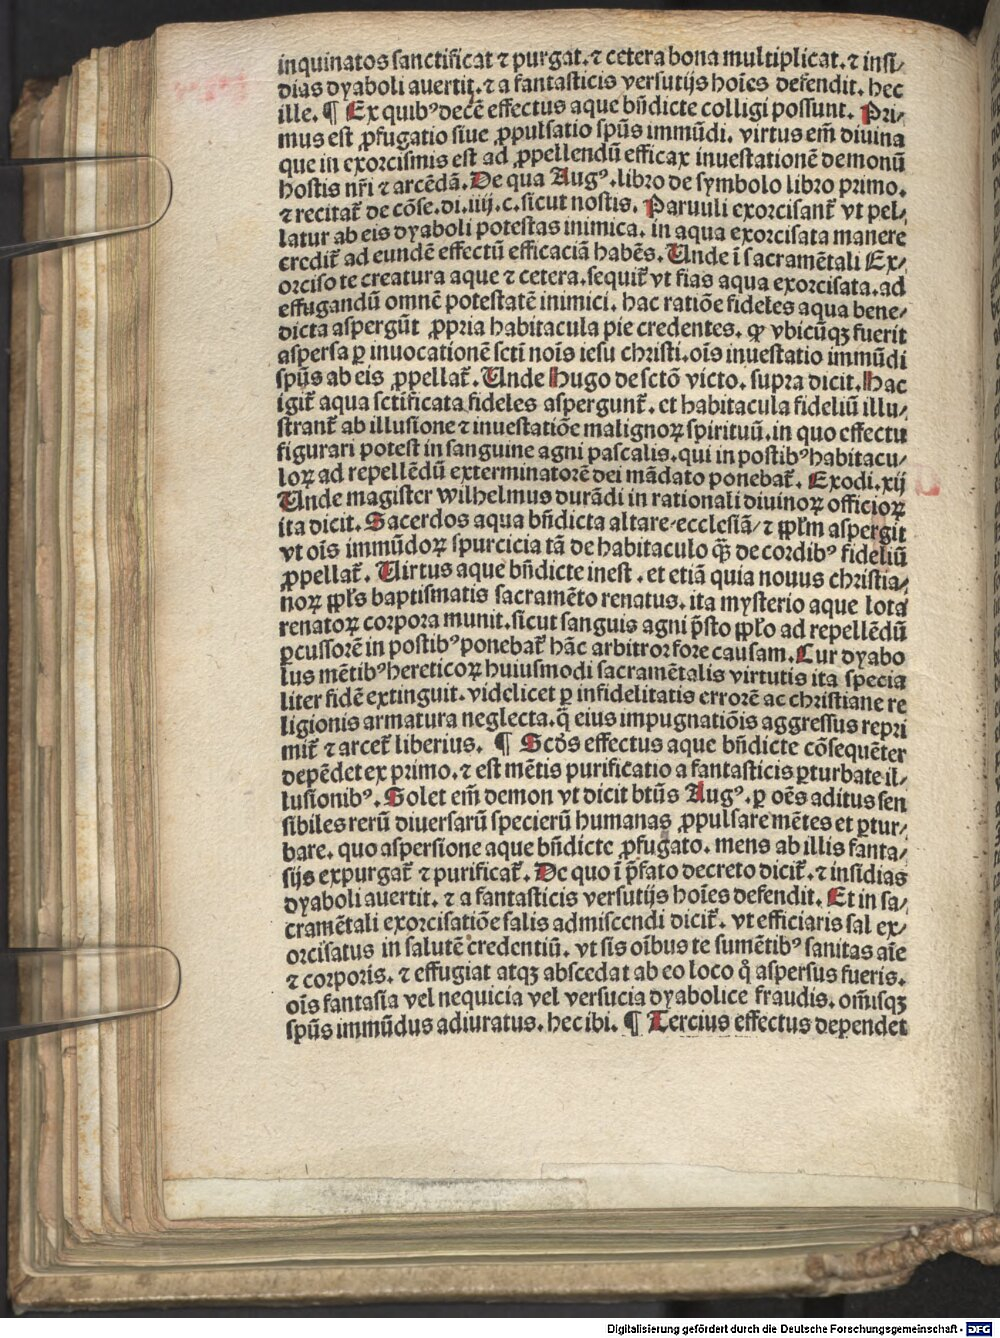 inquinatos sanctificat ⁊ purgat. ⁊ cetera bona multiplicat. ⁊ insi⸗
dias dyaboli auertit. ⁊ a fantasticis versutijs hoīes defendit. hec
ille. ¶ Ex quibꝰ decē effectus aque bn̄dicte colligi possunt. Pri⸗
mus est ꝓfugatio siue ꝓpulsatio spūs immūdi. virtus em̄ diuina
que in exorcismis est ad ꝓpellendū efficax inuestationē demonū
hostis nr̄i ⁊ arcēdā. De qua Augꝰ. libro de symbolo libro primo.
⁊ recitat̄ de cōse. di. iiij. c. sicut nostis. Paruuli exorcisant̄ vt pel⸗
latur ab eis dyaboli potestas inimica. in aqua exorcisata manere
credit̄ ad eundē effectū efficaciā habēs. Unde ī sacramētali Ex⸗
orciso te creatura aque ⁊ cetera. sequit̄ vt fias aqua exorcisata. ad
effugandū omnē potestatē inimici. hac ratiōe fideles aqua bene⸗
dicta aspergūt ꝓpria habitacula pie credentes. ꝙ vbicūqꝫ fuerit
aspersa ꝑ inuocationē scti nois iesu christi. oīs inuestatio immūdi
spūs ab eis ꝓpellat̄. Unde Hugo de sctō victo. supra dicit. Hac
igit̄ aqua sctificata fideles aspergunt̄. et habitacula fideliū illu⸗
strant̄ ab illusione ⁊ inuestatiōe malignoꝝ spirituū. in quo effectu
figurari potest in sanguine agni pascalis. qui in postibꝰ habitacu⸗
loꝝ ad repellēdū exterminatorē dei mādato ponebat̄. Exodi. xij
Unde magister wilhelmus durādi in rationali diuinoꝝ officioꝝ
ita dicit. Sacerdos aqua bn̄dicta altare ecclesiā/ ⁊ ppl̄m aspergit
vt oīs immūdoꝝ spurcicia tā de habitaculo q̄ꝫ de cordibꝰ fideliū
ꝓpellat̄. Uirtus aque bn̄dicte inest. et etiā quia nouus christia⸗
noꝝ ppl̄s baptismatis sacramēto renatus. ita mysterio aque lota
renatoꝝ corpora munit. sicut sanguis agni p̄sto pplo ad repellēdū
ꝑcussorē in postibꝰ ponebat̄ hāc arbitror fore causam. Cur dyabo
lus mētibꝰ hereticoꝝ huiusmodi sacramētalis virtutis ita specia
liter fidē extinguit. videlicet ꝑ infidelitatis errorē ac christiane re
ligionis armatura neglecta. q̄ eius impugnatiōis aggressus repri
mit̄ ⁊ arcet̄ liberius. ¶ Scd̄s effectus aque bn̄dicte cōsequēter
depēdet ex primo. ⁊ est mētis purificatio a fantasticis ꝑturbate il⸗
lusionibꝰ. Solet em̄ demon vt dicit btūs Augꝰ. ꝑ oēs aditus sen
sibiles rerū diuersarū specierū humanas ꝓpulsare mētes et ꝑtur⸗
bare. quo aspersione aque bn̄dicte ꝓfugato. mens ab illis fanta⸗
sijs expurgat̄ ⁊ purificat̄. De quo ī p̄fato decreto dicit̄. ⁊ insidias
dyaboli auertit. ⁊ a fantasticis versutijs hoīes defendit. Et in sa⸗
cramētali exorcisatiōe salis admiscendi dicit̄. vt efficiaris sal ex⸗
orcisatus in salutē credentiū. vt sis oībus te sumētibꝰ sanitas aīe
⁊ corporis. ⁊ effugiat atqꝫ abscedat ab eo loco q̊ aspersus fueris.
oīs fantasia vel nequicia vel versucia dyabolice fraudis. om̄isqꝫ
spūs immūdus adiuratus. hec ibi. ¶ Tercius effectus dependet
Digitalisierung gefördert durch die Deutsche Forschungsgemeinschaft - DFG